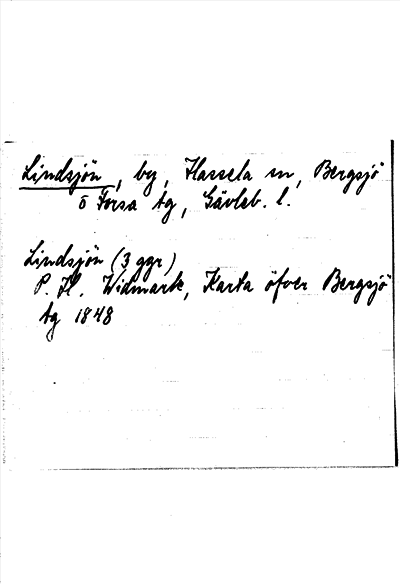 Lindsjön, by, Hassela sn, Bergsjö
o Forsa tg, Gävleb. l.
Lindsjön (3 ggr)
P. H. Widmark, Karta öfver Bergsjö
tg 1848